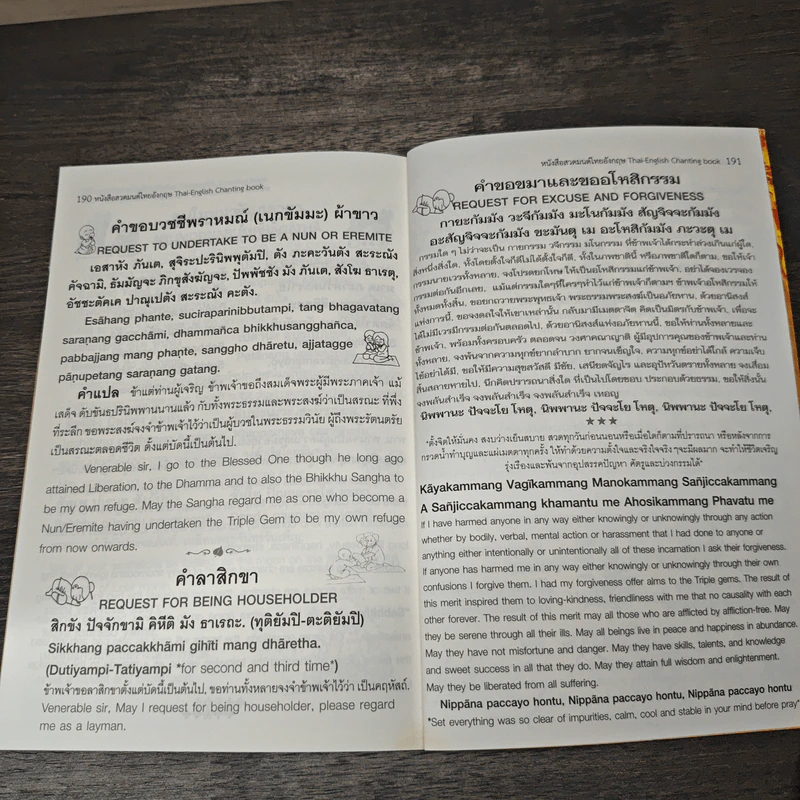 190 หนังสือสวดมนต์ไทยอังกฤษ Thai-English Chanting book
คำขอบวชชีพราหมณ์ (เนกขัมมะ) ผ้าขาว
REQUEST TO UNDERTAKE TO BE A NUN OR EREMITE
เอสาหัง ภันเต, สุจิระปะรินิพพุตัมปิ, ตัง ภะคะวันตัง สะระณัง
คัจฉามิ, ธัมมัญจะ ภิกขุสังฆัญจะ, ปัพพัชชัง มัง ภันเต, สังโฆ ธาเรตุ,
อัชชะตัคเค ปาณุเปตัง สะระณัง คะตัง.
Esāhang phante, suciraparinibbutampi, tang bhagavatang
saraṇang gacchāmi, dhammañca bhikkhusangghañca,
pabbajjang mang phante, sanggho dhāretu, ajjatagge
pāṇupetang saraṇang gatang.
คำแปล ข้าแต่ท่านผู้เจริญ ข้าพเจ้าขอถึงสมเด็จพระผู้มีพระภาคเจ้า แม้
เสด็จ ดับขันธปรินิพพานนานแล้ว กับทั้งพระธรรมและพระสงฆ์ว่าเป็นสรณะ ที่พึ่ง
ที่ระลึก ขอพระสงฆ์จงจำข้าพเจ้าไว้ว่าเป็นผู้บวชในพระธรรมวินัย ผู้ถึงพระรัตนตรัย
เป็นสรณะตลอดชีวิต ตั้งแต่บัดนี้เป็นต้นไป.
Venerable sir, I go to the Blessed One though he long ago
attained Liberation, to the Dhamma and to also the Bhikkhu Sangha to
be my own refuge. May the Sangha regard me as one who become a
Nun/Eremite having undertaken the Triple Gem to be my own refuge
from now onwards.
คำลาสิกขา
REQUEST FOR BEING HOUSEHOLDER
สิกขัง ปัจจักขามิ คิหีติ มัง ธาเรถะ. (ทุติยัมปิ-ตะติยัมปิ)
Sikkhang paccakkhāmi gihīti mang dhāretha.
(Dutiyampi-Tatiyampi *for second and third time*)
ข้าพเจ้าขอลาสิกขาตั้งแต่บัดนี้เป็นต้นไป, ขอท่านทั้งหลายจงจำข้าพเจ้าไว้ว่า เป็นคฤหัสถ์.
Venerable sir, May I request for being householder, please regard
me as a layman.
หนังสือสวดมนต์ไทยอังกฤษ Thai-English Chanting book 191
คำขอขมาและขออโหสิกรรม
REQUEST FOR EXCUSE AND FORGIVENESS
กายะกัมมัง วะจีกัมมัง มะโนกัมมัง สัญจิจจะกัมมัง
อะสัญจิจจะกัมมัง ขะมันตุ เม อะโหสิกัมมัง ภะวะตุ เม
กรรมใด ๆ ไม่ว่าจะเป็น กายกรรม วจีกรรม มโนกรรม ที่ข้าพเจ้าได้กระทำล่วงเกินแก่ผู้ใด,
สิ่งหนึ่งสิ่งใด. ทั้งโดยตั้งใจก็ดีไม่ได้ตั้งใจก็ดี. ทั้งในภพชาตินี้ หรือภพชาติใดก็ตาม. ขอให้เจ้า
กรรมนายเวรทั้งหลาย. จงโปรดยกโทษ ให้เป็นอโหสิกรรมแก่ข้าพเจ้า. อย่าได้จองเวรจอง
กรรมต่อกันอีกเลย. แม้แต่กรรมใดๆที่ใครๆทำไว้แก่ข้าพเจ้าก็ตามฯ ข้าพเจ้าอโหสิกรรมให้
ทั้งหมดทั้งสิ้น. ขอยกถวายพระพุทธเจ้า พระธรรมพระสงฆ์เป็นอภัยทาน. ด้วยอานิสงส์
แห่งการนี้. ขอจงดลใจให้เขาเหล่านั้น กลับมามีเมตตาจิต คิดเป็นมิตรกับข้าพเจ้า, เพื่อจะ
ได้ไม่มีเวรมีกรรมต่อกันตลอดไป. ด้วยอานิสงส์แห่งอภัยทานนี้. ขอให้ท่านทั้งหลายและ
ข้าพเจ้า. พร้อมทั้งครอบครัว ตลอดจน วงศาคณาญาติ ผู้มีอุปการคุณของข้าพเจ้าและท่าน
ทั้งหลาย. จงพ้นจากความทุกข์ยากลำบาก ยากจนเข็ญใจ. ความทุกข์อย่าได้ใกล้ ความเจ็บ
ไข้อย่าได้มี. ขอให้มีความสุขสวัสดี มีชัย. เสนียดจัญไร และอุปัทวันตรายทั้งหลาย จงเสื่อม
สิ้นสลายหายไป. นึกคิดปรารถนาสิ่งใด ที่เป็นไปโดยชอบ ประกอบด้วยธรรม. ขอให้สิ่งนั้น
จงพลันสำเร็จ จงพลันสำเร็จ จงพลันสำเร็จ เทอญ
นิพพานะ ปัจจะโย โหตุ, นิพพานะ ปัจจะโย โหตุ, นิพพานะ ปัจจะโย โหตุ,
★★★
*ตั้งจิตให้มั่นคง สงบว่างเย็นสบาย สวดทุกวันก่อนนอนหรือเมื่อใดก็ตามที่ปรารถนา หรือหลังจากการ
กรวดน้ำทำบุญและแผ่เมตตาทุกครั้ง ให้ทำด้วยความตั้งใจและจริงใจจริง ๆจะมีผลมาก จะทำให้ชีวิตเจริญ
รุ่งเรืองและพ้นจากอุปสรรคปัญหา ศัตรูและบ่วงกรรมได้*
Kāyakammang Vagīkammang Manokammang Sañjiccakammang
A Sañjiccakammang khamantu me Ahosikammang Phavatu me
If I have harmed anyone in any way either knowingly or unknowingly through any action
whether by bodily, verbal, mental action or harassment that I had done to anyone or
anything either intentionally or unintentionally all of these incarnation I ask their forgiveness.
If anyone has harmed me in any way either knowingly or unknowingly through their own
confusions I forgive them. I had my forgiveness offer aims to the Triple gems. The result of
this merit inspired them to loving-kindness, friendliness with me that no causality with each
other forever. The result of this merit may all those who are afflicted by affliction-free. May
they be serene through all their ills. May all beings live in peace and happiness in abundance.
May they have not misfortune and danger. May they have skills, talents, and knowledge
and sweet success in all that they do. May they attain full wisdom and enlightenment.
May they be liberated from all suffering.
Nippāna paccayo hontu, Nippāna paccayo hontu, Nippāna paccayo hontu
*Set everything was so clear of impurities, calm, cool and stable in your mind before pray*